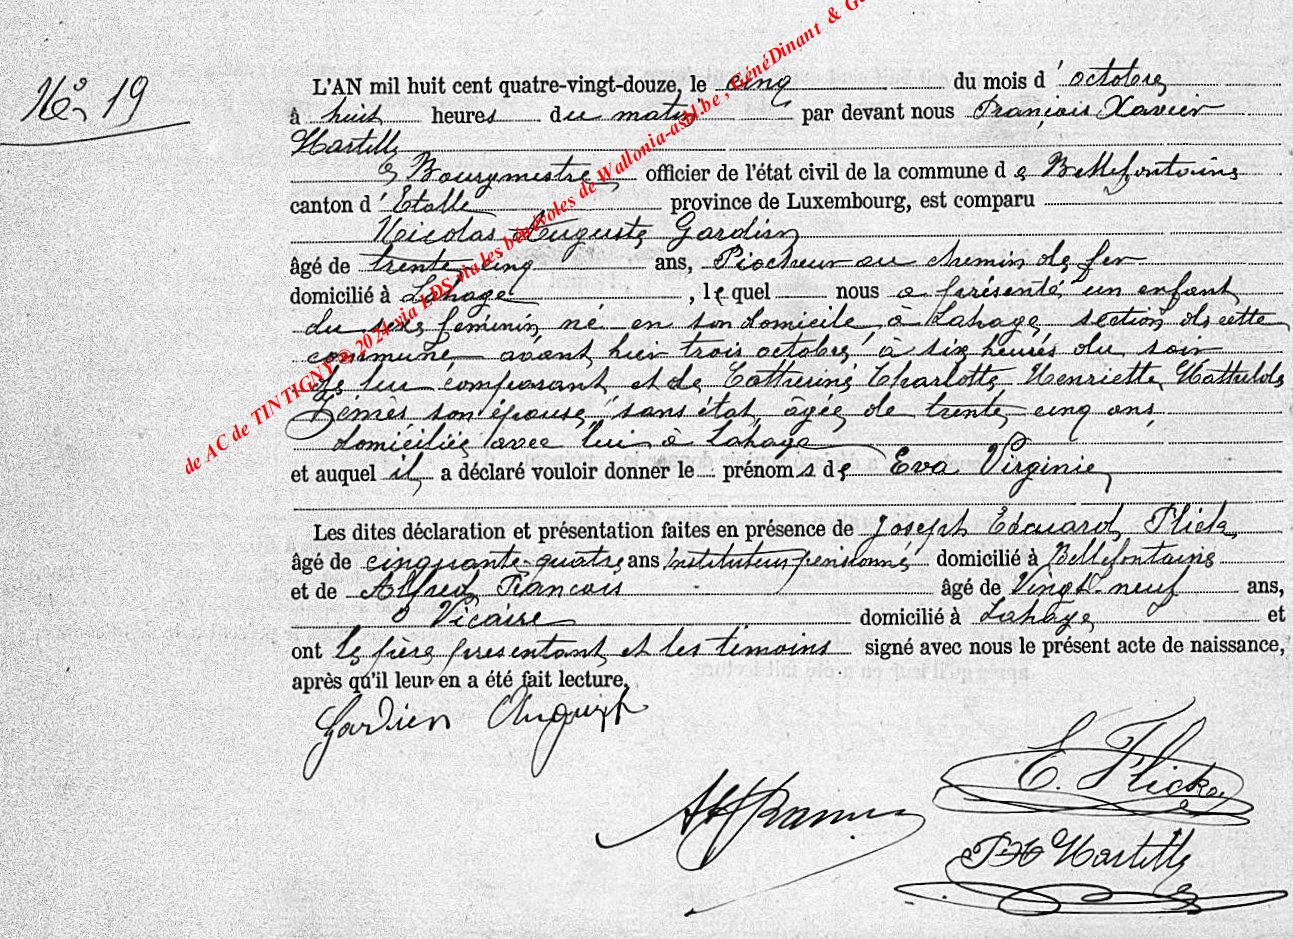 N° 19
L'AN mil huit cent quatre-vingt-douze, le cinq du mois d'octobre
à huit heures du matin par devant nous François Xavier
Hartelle
Bourgmestre officier de l'état civil de la commune de Bellefontaine
canton d'Etalle province de Luxembourg, est comparu
Nicolas Auguste Gardien
âgé de trente cinq ans, Piocheur au chemin de fer
domicilié à Lahage, lequel nous a présenté un enfant
du sexe féminin né en son domicile à Lahage, section de cette
commune avant hier trois octobre à six heures du soir
de lui comparant et de Catherine Charlotte Henriette Mathilde
son épouse, sans état, âgée de trente cinq ans
domiciliée avec lui à Lahage
et auquel il a déclaré vouloir donner le prénoms de Eva Virginie
Les dites déclaration et présentation faites en présence de Joseph Edouard Flick
âgé de cinquante-quatre ans instituteur pensionné domicilié à Bellefontaine
et de Alfred François âgé de Vingt-neuf ans,
Vicaire domicilié à Lahage et
ont le père présentant et les témoins signé avec nous le présent acte de naissance,
après qu'il leur en a été fait lecture.
Gardien Auguste
E. Flick
Hartelle
de AC de TINTIGNY @ 2024 via LDS via les bénévoles de Wallonia-asbl.be, GénéDinant &